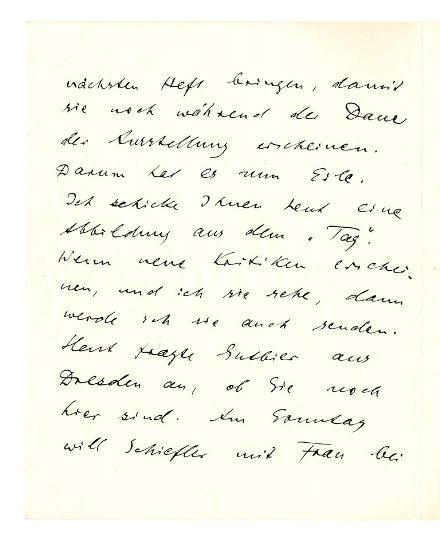 nächsten Heft bringen, damit
sie noch während der Dauer
der Ausstellung erscheinen.
Darum hat es nun Eile.
Ich schicke Ihnen heut eine
Abbildung aus dem „Tag".
Wenn neue Kritiken erschei-
nen, und ich sie sehe, dann
werde ich sie auch senden.
Heut fragte Gutbier aus
Dresden an, ob Sie noch
hier sind. Am Sonntag
will Schiefler mit Frau bei